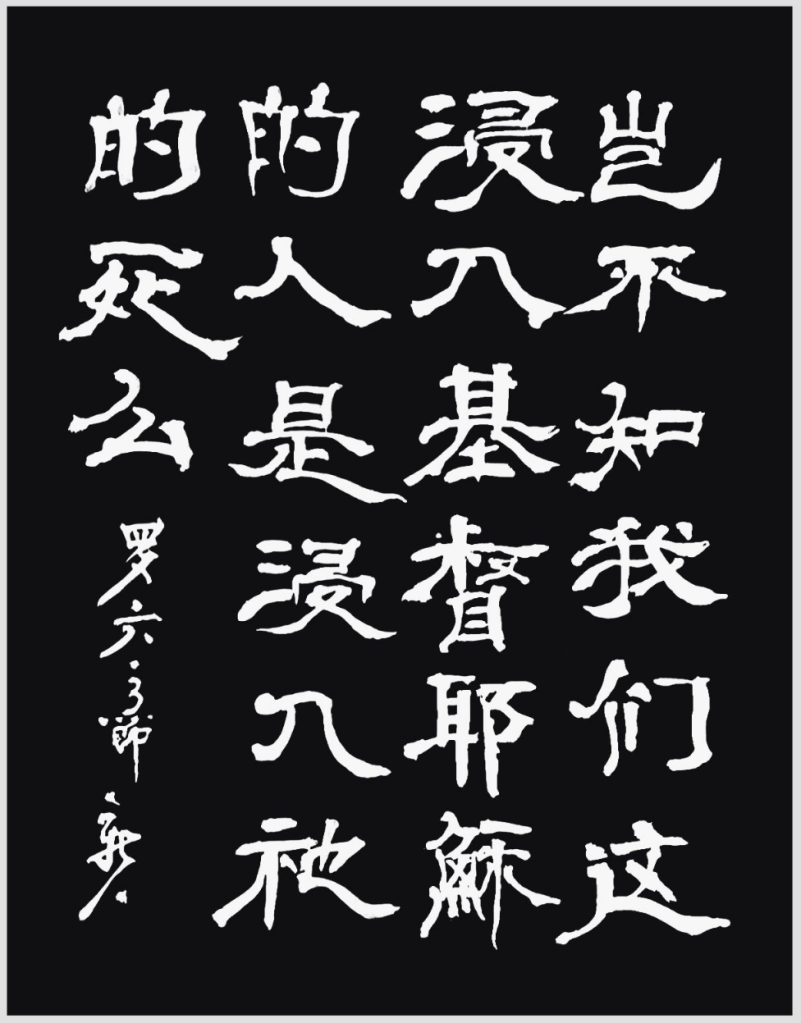 岂不知我们这
浸入基督耶稣
的人是浸入祂
的死么
罗六3節